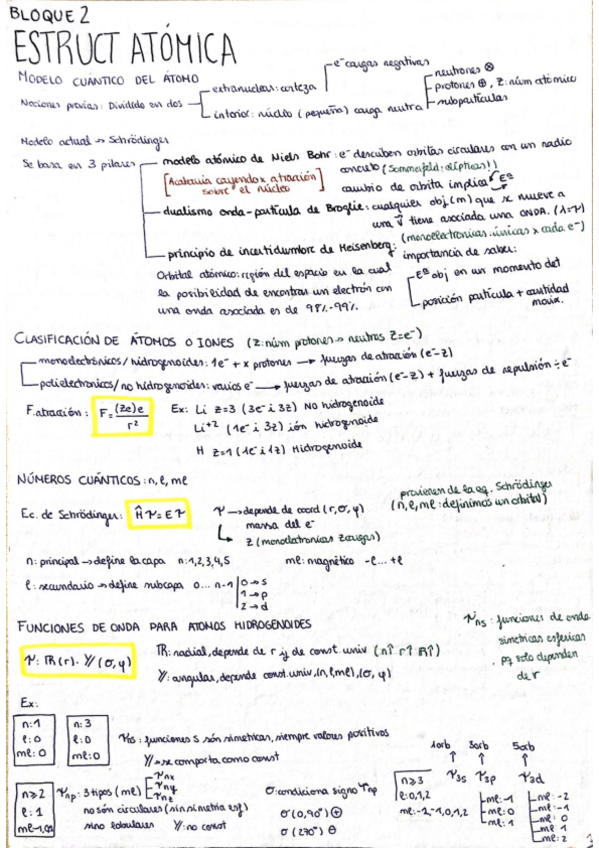 BLOQUE 2
ESTRUCT ATÓMICA
MODELO CUÁNTICO DEL ÁTOMO
Nociones previas: Dividido en dos
extranuclear: corteza
e⁻ cargas negativas
interior: núcleo (pequeña) carga neutra
neutrones ⊗
protones ⊕, Z: núm atómico
subpartículas
Modelo actual → Schrödinger
Se basa en 3 pilares
modelo atómico de Niels Bohr: e⁻ describen orbitas circulares con un radio
concreto (Sommerfeld: elípticas!!)
[Acabaría cayendo x atracción sobre el núcleo]
cambio de orbita implica E
dualismo onda-partícula de Broglie: cualquier obj (m) que se mueve a
una v tiene asociada una ONDA. (λ=r)
principio de incertidumbre de Heisenberg:
(monoelectronicas: únicas x cada e⁻)
importancia de saber:
E obj en un momento det
posición partícula + cantidad movx.
Orbital atómico: región del espacio en la cual
la posibilidad de encontrar un electrón con
una onda asociada es de 98%-99%.
CLASIFICACIÓN DE ÁTOMOS O IONES (Z: núm protones → neutros Z=e⁻)
monoelectrónicos/hidrogenoides: 1e⁻ + x protones → fuerzas de atracción (e⁻-z)
polielectronicos/no hidrogenoides: varios e⁻ → fuerzas de atracción (e⁻-z) + fuerzas de repulsión ÷ e⁻
F. atracción: F = (Ze)e / r²
Ex: Li z=3 (3e⁻ i 3z) No hidrogenoide
Li⁺² (1e⁻ i 3z) ión hidrogenoide
H z=1 (1e⁻ i 1z) Hidrogenoide
NÚMEROS CUÁNTICOS: n, ℓ, mℓ
Ec. de Schrödinger: Ĥψ=Eψ
ψ → depende de coord (r,σ,φ)
massa del e⁻
z (monoelectronicas
provienen de la eq. Schrödinger
(n, ℓ, mℓ: definimos un orbital)
n: principal → define la capa n: 1,2,3,4,5
mℓ: magnético -ℓ... +ℓ
ℓ: secundario → define subcapa 0... n-1
0 → s
1 → p
2 → d
FUNCIONES DE ONDA PARA ATOMOS HIDROGENOIDES
ψns: funciones de onda
simetricas esfericas
pq solo dependen
de r
ψ: R(r) · Y(σ,φ)
R: radial, depende de r y de const. univ (n↑ r↑ R↑)
Y: angulas, depende const. univ, (n, ℓ, mℓ), (σ, φ)
Ex:
n: 1
ℓ: 0
mℓ: 0
n: 3
ℓ: 0
mℓ: 0
ψns: funciones s són simetricas, siempre valores positivos
Y → se comporta como const
n≥2
ℓ: 1
mℓ: -1,0,1
ψnp: 3 tipos (mℓ)
ψnx
ψny
ψnz
no són circulares (sin simetria esf)
sino lobulares Y: no const
σ: condiciona signo ψnp
σ (0,90°) ⊕
σ (270°) ⊖
n≥3
ℓ: 0,1,2
mℓ: -2,-1,0,1,2
1orb 3orb 5orb
ψ3s ψ3p ψ3d
mℓ: -1
mℓ: 0
mℓ: 1
mℓ: -2
mℓ: -1
mℓ: 0
mℓ: 1
mℓ: 2